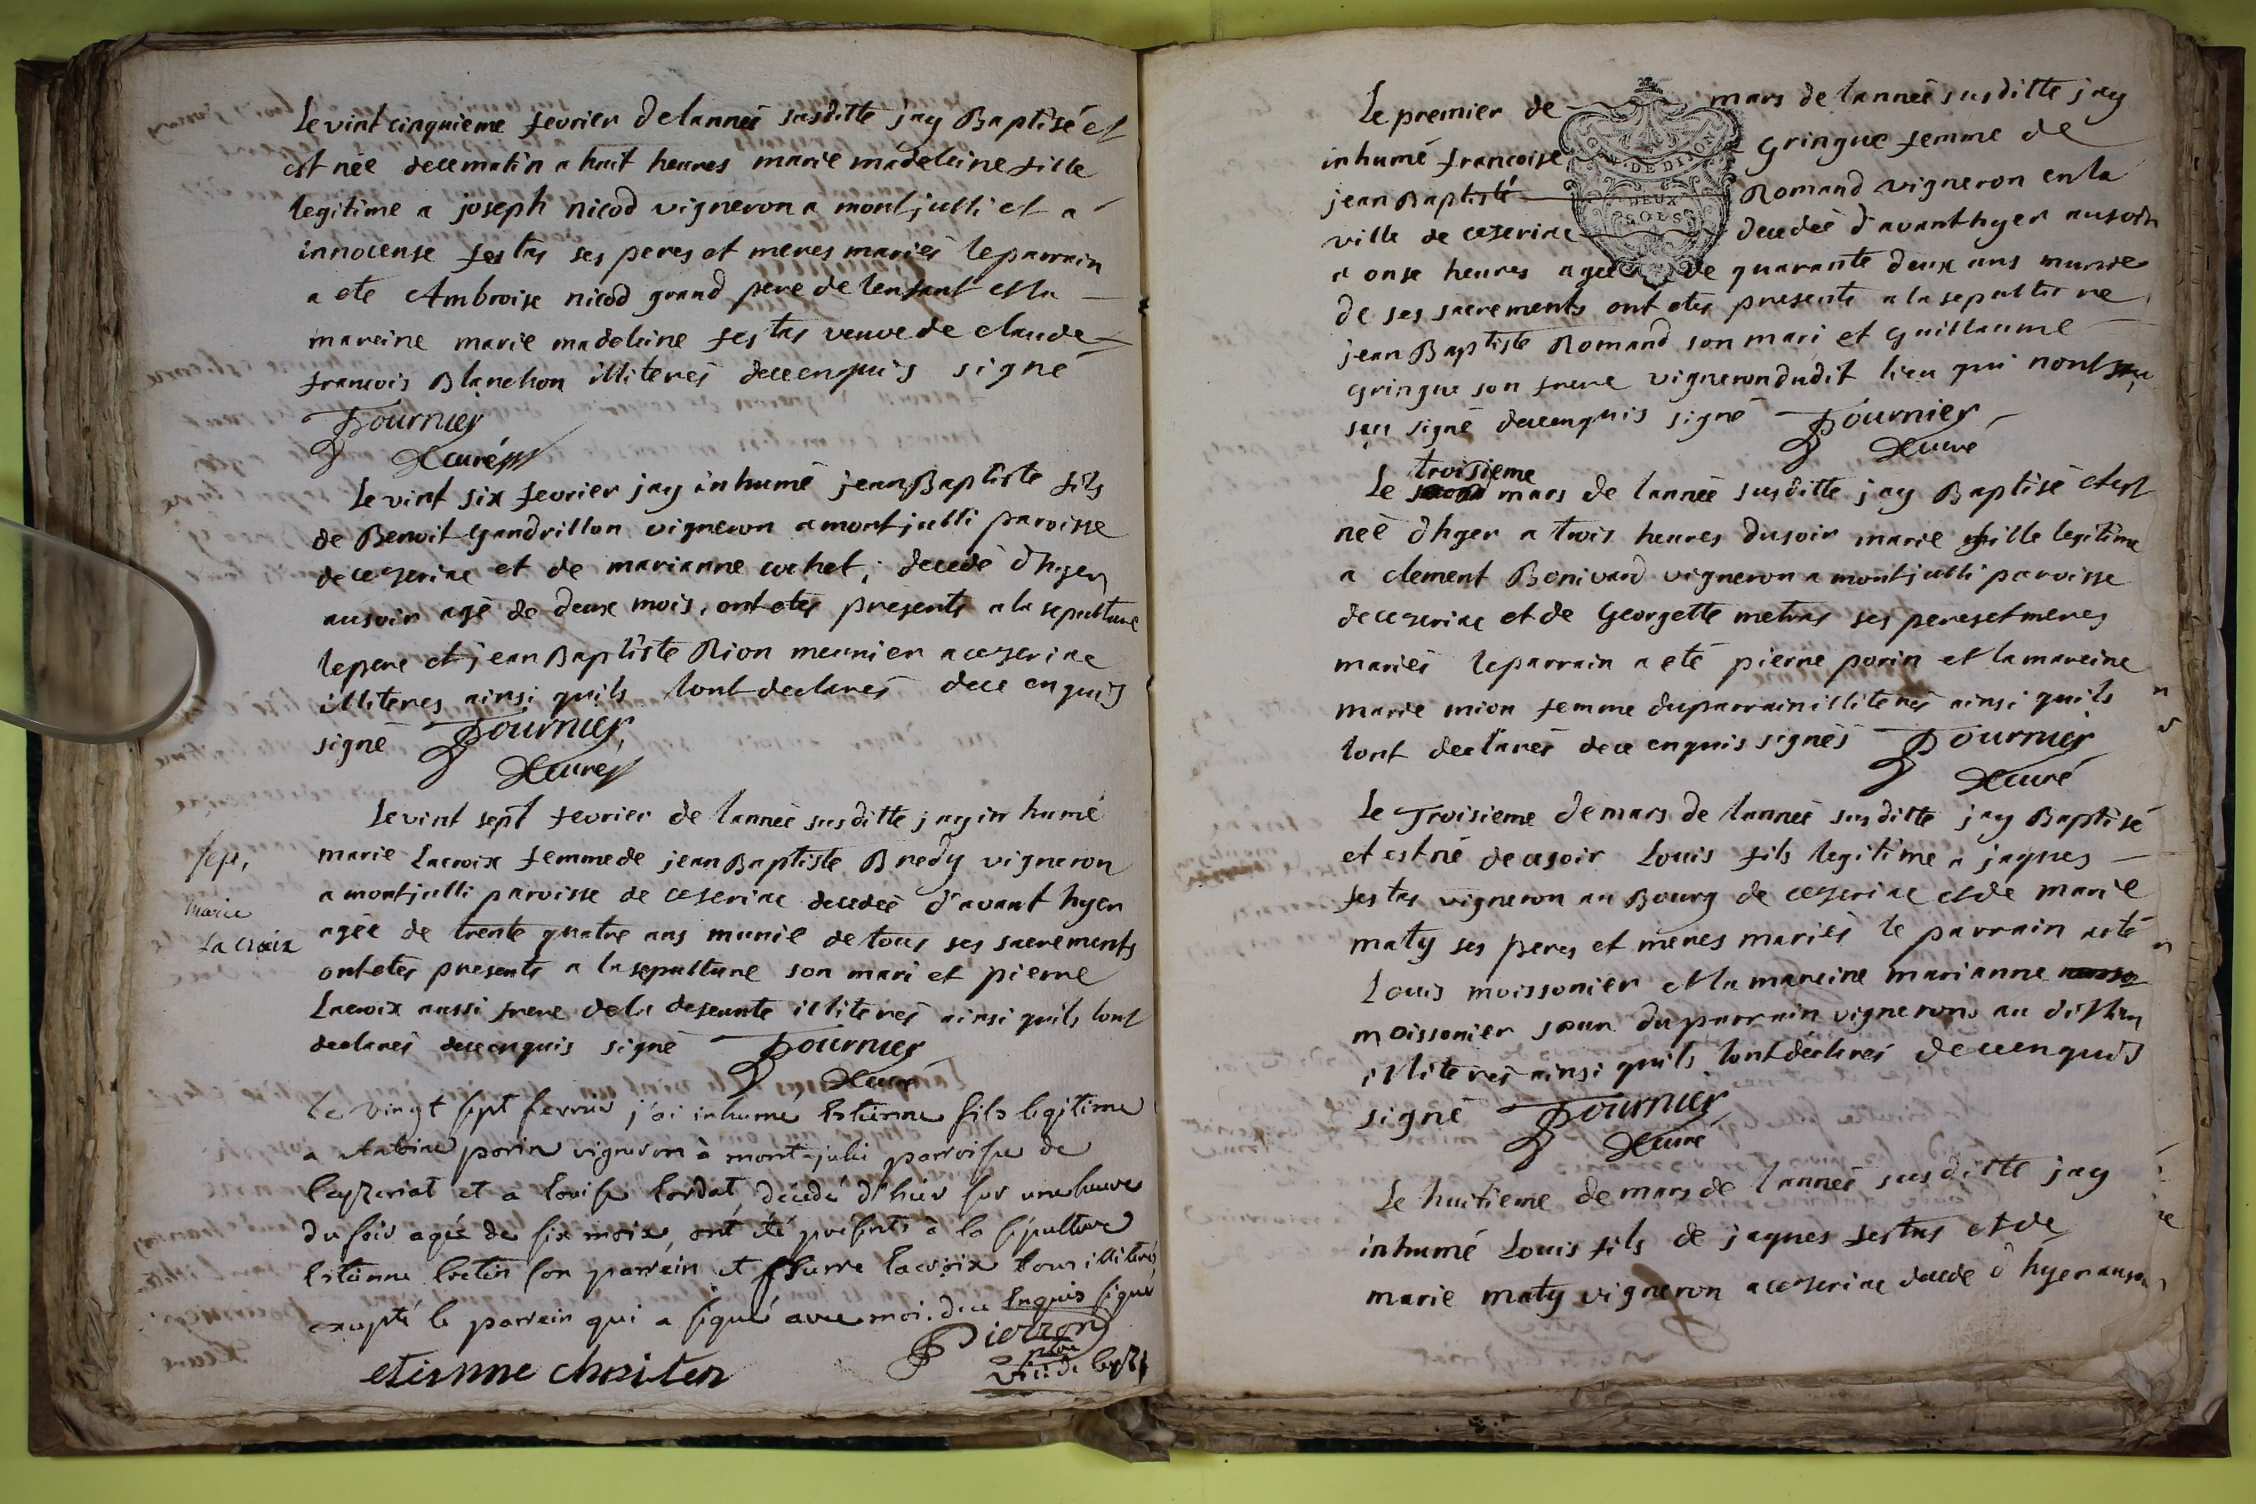 Le vint cinquieme fevrier de lanneé susditte jay Baptisé et
est neé decematin a huit heures marie madeleine fille
legitime a joseph nicod vigneron a montjulli et a
innocense festas ses peres et meres mariés leparrain
a eté Ambroise nicod grand pere de lenfant et la
mareine marie madeleine festas veuve de claude
francois Blanchon illiterés dece enquis signé
Fournier
Curé
Le vint six fevrier jay inhumé jean Baptiste fils
de Benoit Gandrillon vigneron a montjulli paroisse
de ceseriac et de marianne cochet, decedé dhyer
ausoir agé de deux mois, ont etés presents a la sepulture
lepere et jean Baptiste Rion meunier a ceseriac
illiteres ainsi quils lont declarés dece enquis
signé Fournier
Curé
Le vint sept fevrier de lanneé susditte jay inhumé
marie Lacroix femme de jean Baptiste Bredy vigneron
a montjulli paroisse de ceseriac decedeé d'avant hyer
ageé de trente quatre ans munie de tous ses sacrements
ont etés presents a la sepulture son mari et pierre
Lacroix aussi frere dela defeunte illiterés ainsi quils lont
declarés dece enquis signé Fournier
Curé
sep,
marie
La croix
Le vingt sept fevrier j'ai inhumé Estienne fils legitime
a Antoine porin vigneron à mont-juli parroisse de
Ceyzeriat et a Louise Cordat, décédé d'hier sur une heure
du soir agée de six mois, ont été présents à la sépulture
Estienne son parrein et pierre Lacroix tous illiterés,
excepté le parrein qui a signé avec moi. dece Enquis signé
Pierron
etienne chaiten
Le premier de mars de lanneé susditte jay
GEN. DE DIJON
DEUX
SOLS
inhumé francoise Gringue femme de
jean Baptiste Romand vigneron en la
ville de ceseriac decedeé d'avanthyer ausoir
a onse heures ageé de quarante deux ans munie
de ses sacrements ont etes presents a la sepulture
jean Baptiste Romand son mari et Guillaume
Gringue son frere vigneron dudit lieu qui nont
seu signé dece enquis signé Fournier
Curé
troisieme
Le mars de lanneé susditte jay Baptisé et est
neé dhyer a trois heures dusoir marie fille legitime
a clement Bonivard vigneron a montjulli paroisse
de ceseriac et de Georgette metras ses peres et meres
mariés leparrain a eté pierre porin et la mareine
marie mion femme duparrain illiterés ainsi quils
lont declarés dece enquis signés Fournier
Curé
Le Troisieme de mars de lanneé susditte jay Baptisé
et est né de cesoir Louis fils legitime a jaques
festas vigneron au Bourg de ceseriac et de marie
maty ses peres et meres mariés le parrain a eté
Louis moissonier et la mareine marianne
moissonier sœur du parrain vignerons au dit lieu
illiterés ainsi quils lont déclarés dece enquis
signé Fournier
Curé
Le huitieme de mars de lanneé susditte jay
inhumé Louis fils de jaques festas et de
marie maty vigneron a ceseriac decedé dhyer ausoir